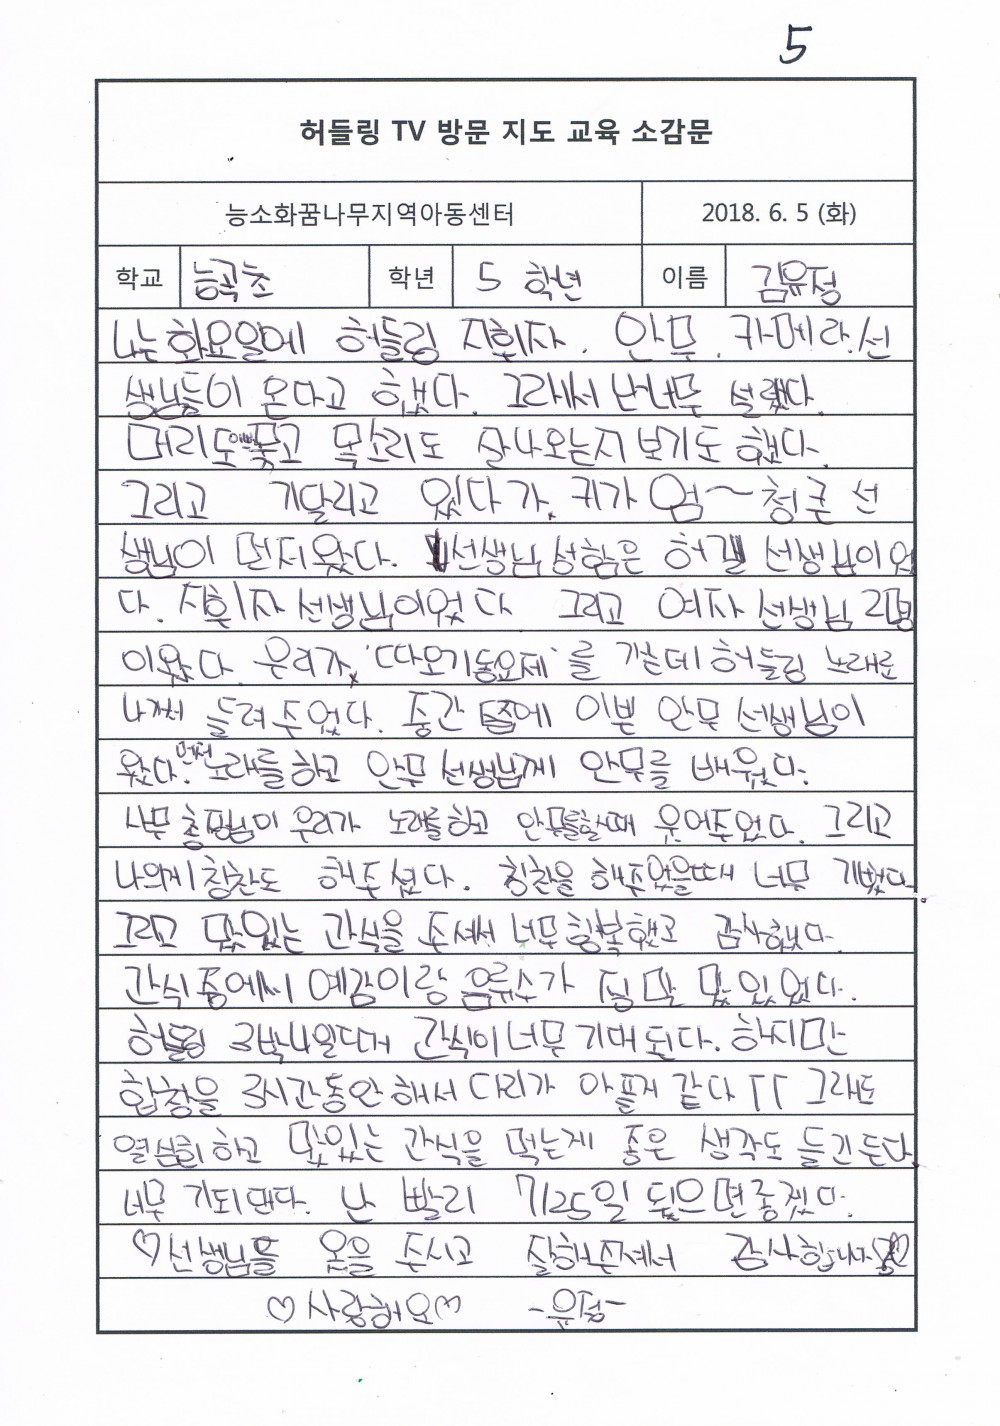 5
허들링 TV 방문 지도 교육 소감문
능소화꿈나무지역아동센터 2018. 6. 5 (화)
학교 능곡초 학년 5 학년 이름 김유정
나는 화요일에 허들링 지휘자, 안무, 카메라, 선
생님들이 온다고 했다. 그래서 난 너무 설렜다.
머리도 묶고 목소리도 잘 나오는지 보기도 했다.
그리고 기달리고 있다가, 키가 엄~청 큰 선
생님이 먼저 왔다. 선생님 성함은 허캘 선생님이었
다. 지휘자 선생님이었다 그리고 여자 선생님 2명
이 왔다. 우리가, '따오기동요제'를 허들링 노래로
들려주었다. 중간 쯤에 이쁜 안무 선생님이
왔다. 먼저 노래를 하고 안무 선생님께 안무를 배웠다.
사무총장님이 우리가 노래를 하고 안무를 할때 웃어주었다. 그리고
나의게 칭찬도 해주셨다. 칭찬을 해주었을때 너무 기뻤다.
그리고 맜있는 간식을 주셔서 너무 행복했고 감사했다.
간식 중에서 예감이랑 음류수가 맜있었다.
허들링 3박4일때 간식이 너무 기대된다. 하지만
합창을 3시간동안 해서 다리가 아플거 같다 ㅜㅜ 그래도
열심히 하고 맜있는 간식을 먹는게 좋은 생각도 들긴 든다.
너무 기되댄다. 난 빨리 7/25일 됬으면 좋겠다.
♡선생님들 옷을 주시고 잘해주셔서 감사합니다♡
♡사랑해요♡ -유정-